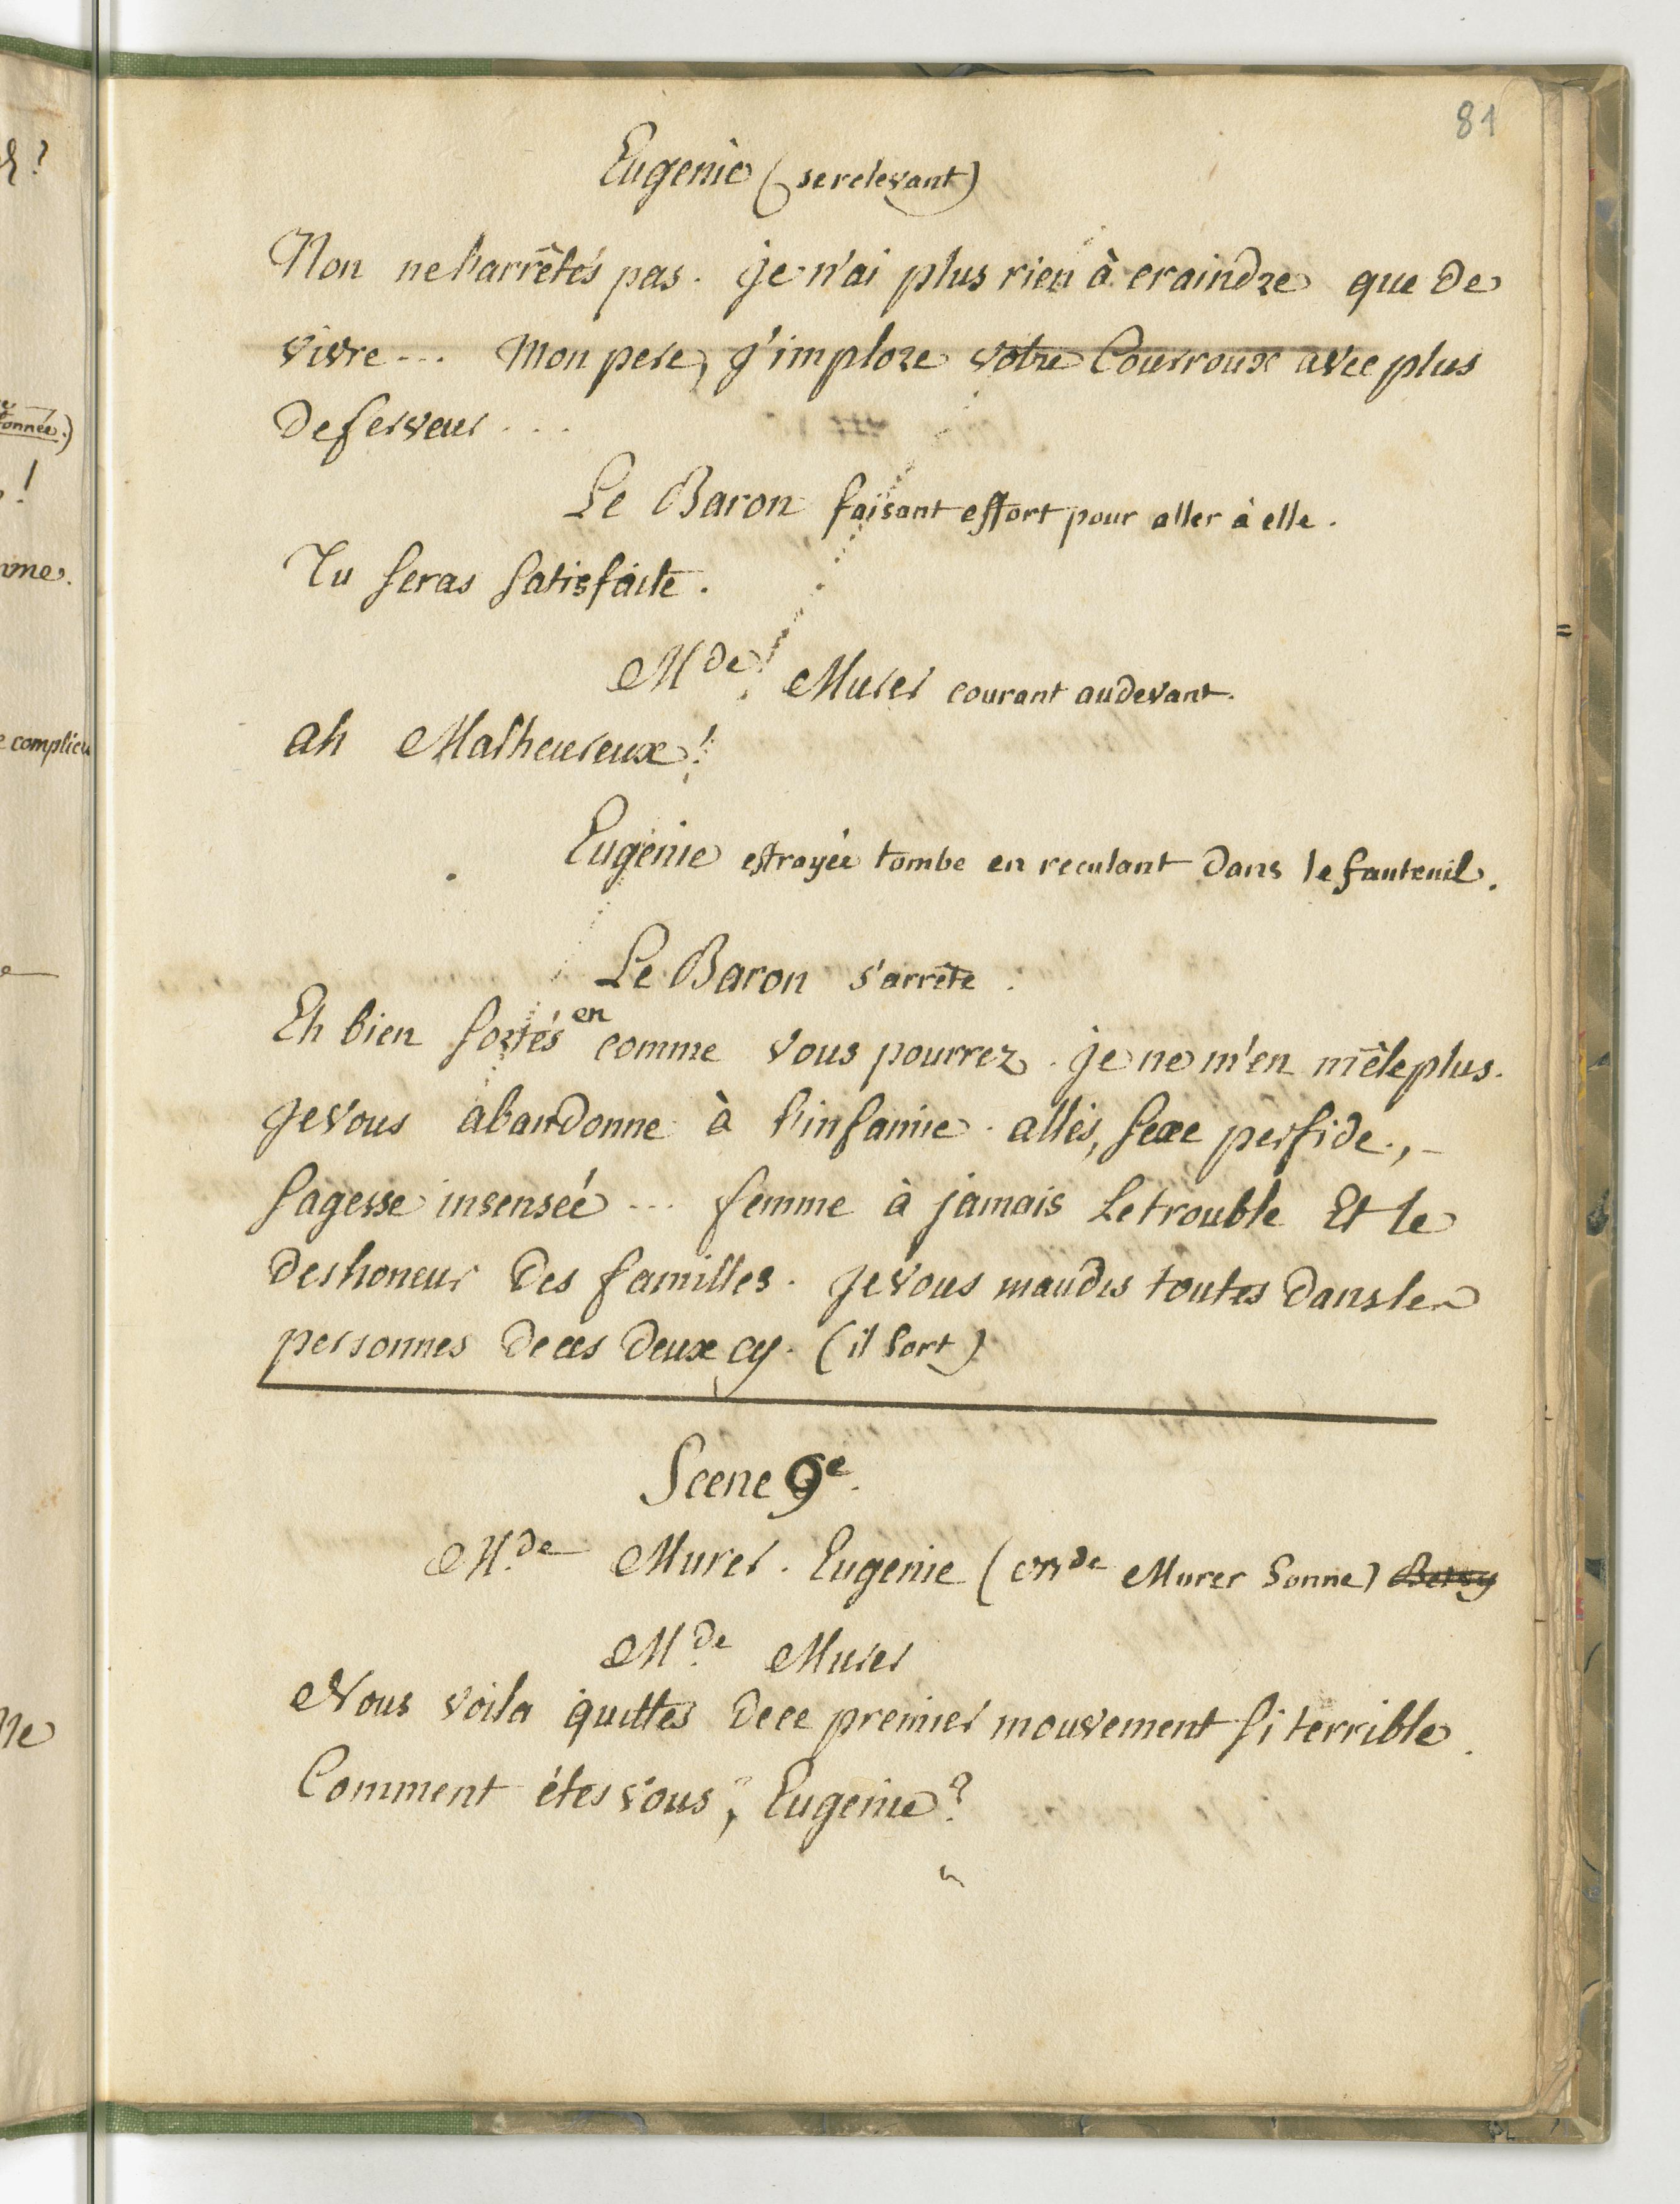 81
Eugenie (se relevant)
Non ne l'arrêtés pas. je n'ai plus rien à craindre que de
vivre... Mon pere, j'implore votre Courroux avec plus
de ferveur...
Le Baron faisant effort pour aller à elle.
Tu seras satisfaite.
M.de Murer courant au devant.
ah Malheureux!
Eugénie effrayée tombe en reculant dans le fauteuil.
Le Baron s'arrête.
en
Eh bien sortés comme vous pourrez. je ne m'en mêle plus.
je vous abandonne à l'infamie. allés, sexe perfide.,-
sagesse insensée... femme à jamais Le trouble Et le
deshoneur des familles. je vous maudis toutes dans les
personnes de ces deux cy. (il sort)
Scene 9e.
M.de Murer. Eugenie (Mde Murer sonne) Betsy
M.de Murer
Nous voila quittes de ce premier mouvement si terrible.
Comment étes vous, Eugenie?
?
onnée.)
!
ame.
e complice
ne